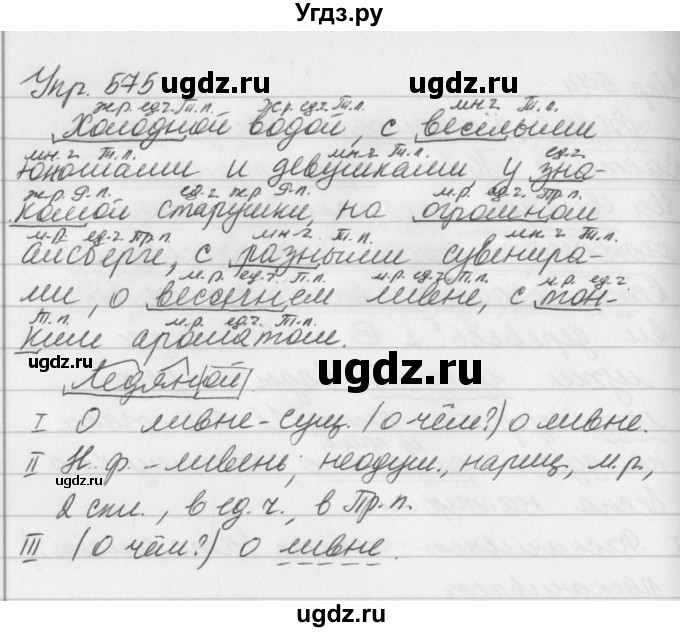 Угдз.ру
Упр. 575
ugdz.ru ugdz.ru
ж.р. ед.ч. Т.п. ж.р. ед.ч. Т.п. мн.ч. Т.п.
Холодной водой, с весёлыми
мн.ч. Т.п. мн.ч. Т.п. ед.ч.
юношами и девушками, у зна-
ж.р. Р.п. ед.ч. ж.р. Р.п. м.р. ед.ч. Пр.п.
комой старушки, на огромном
м.р. ед.ч. Пр.п. мн.ч. Т.п. мн.ч. Т.п.
айсберге, с разными сувенира-
м.р. ед.ч. П.п. м.р. ед.ч. П.п. м.р. ед.ч.
ми, о весеннем ливне, с тон-
Т.п. м.р. ед.ч. Т.п.
ким ароматом.
ugdz.ru ugdz.ru
Ледяной.
I О ливне - сущ. (о чём?) о ливне.
II Н.ф. - ливень, неодуш., нариц., м.р.,
2 скл., в ед.ч., в Пр.п.
III (О чём?) о ливне.
ugdz.ru
ugdz.ru